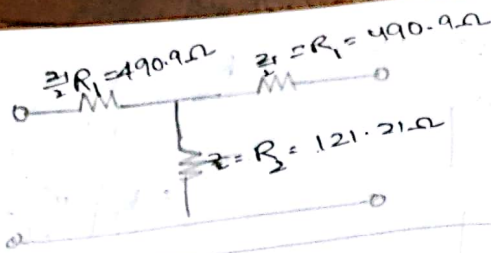 Z₁/2 R₁ = 490.9Ω
Z₁/2 = R₁ = 490.9Ω
Z = R₂ = 121.21Ω